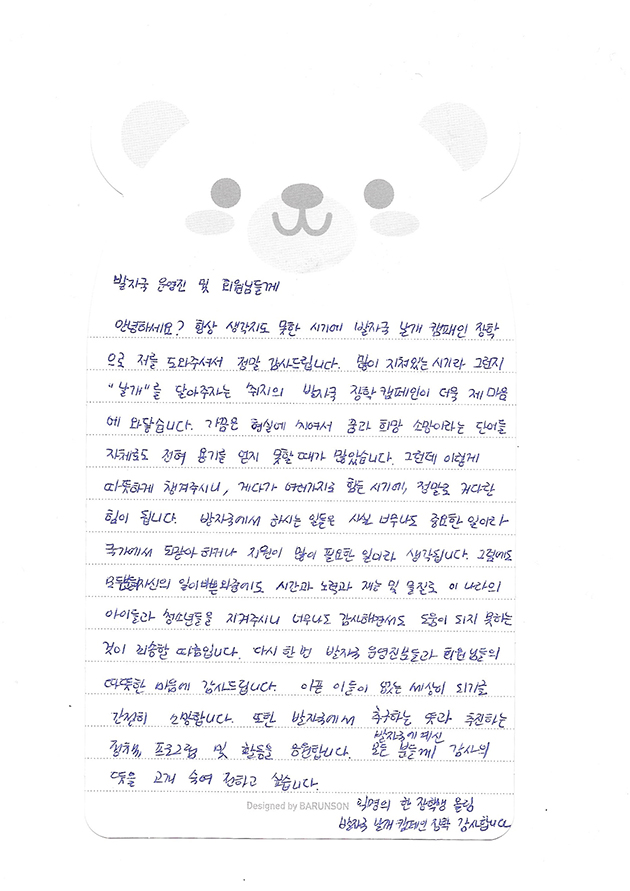 발자국 운영진 및 회원님들께
안녕하세요? 항상 생각지도 못한 시기에 발자국 날개 캠페인 장학
으로 저를 도와주셔서 정말 감사드립니다. 많이 지쳐있는 시기라 그런지
"날개"를 달아주자는 취지의 발자국 장학 캠페인이 더욱 제 마음
에 와닿습니다. 가끔은 현실에 치여서 꿈과 희망 소망이라는 단어들
자체로도 전혀 용기를 얻지 못할 때가 많았습니다. 그런데 이렇게
따뜻하게 챙겨주시니, 게다가 여러가지로 힘든 시기에, 정말로 커다란
힘이 됩니다. 발자국에서 하시는 일들은 사실 너무나도 중요한 일이라
국가에서 도맡아 하거나 지원이 많이 필요한 일이라 생각됩니다. 그럼에도
자신의 일이 바쁜 와중에도 시간과 노력과 재능 및 물질로 이 나라의
아이들과 청소년들을 지켜주시니 너무나도 감사하면서도 도움이 되지 못하는
것이 죄송할 따름입니다. 다시 한 번 발자국 운영진분들과 회원님들의
따뜻한 마음에 감사드립니다. 아픈 이들이 없는 세상이 되기를
간절히 소망합니다. 또한 발자국에서 추구하는 뜻과 추진하는
정책, 프로그램 및 활동을 응원합니다. 발자국에 계신 모든 분들께 감사의
뜻을 고개 숙여 전하고 싶습니다.
Designed by BARUNSON 익명의 한 장학생 올림
발자국 날개 캠페인 장학 감사합니다